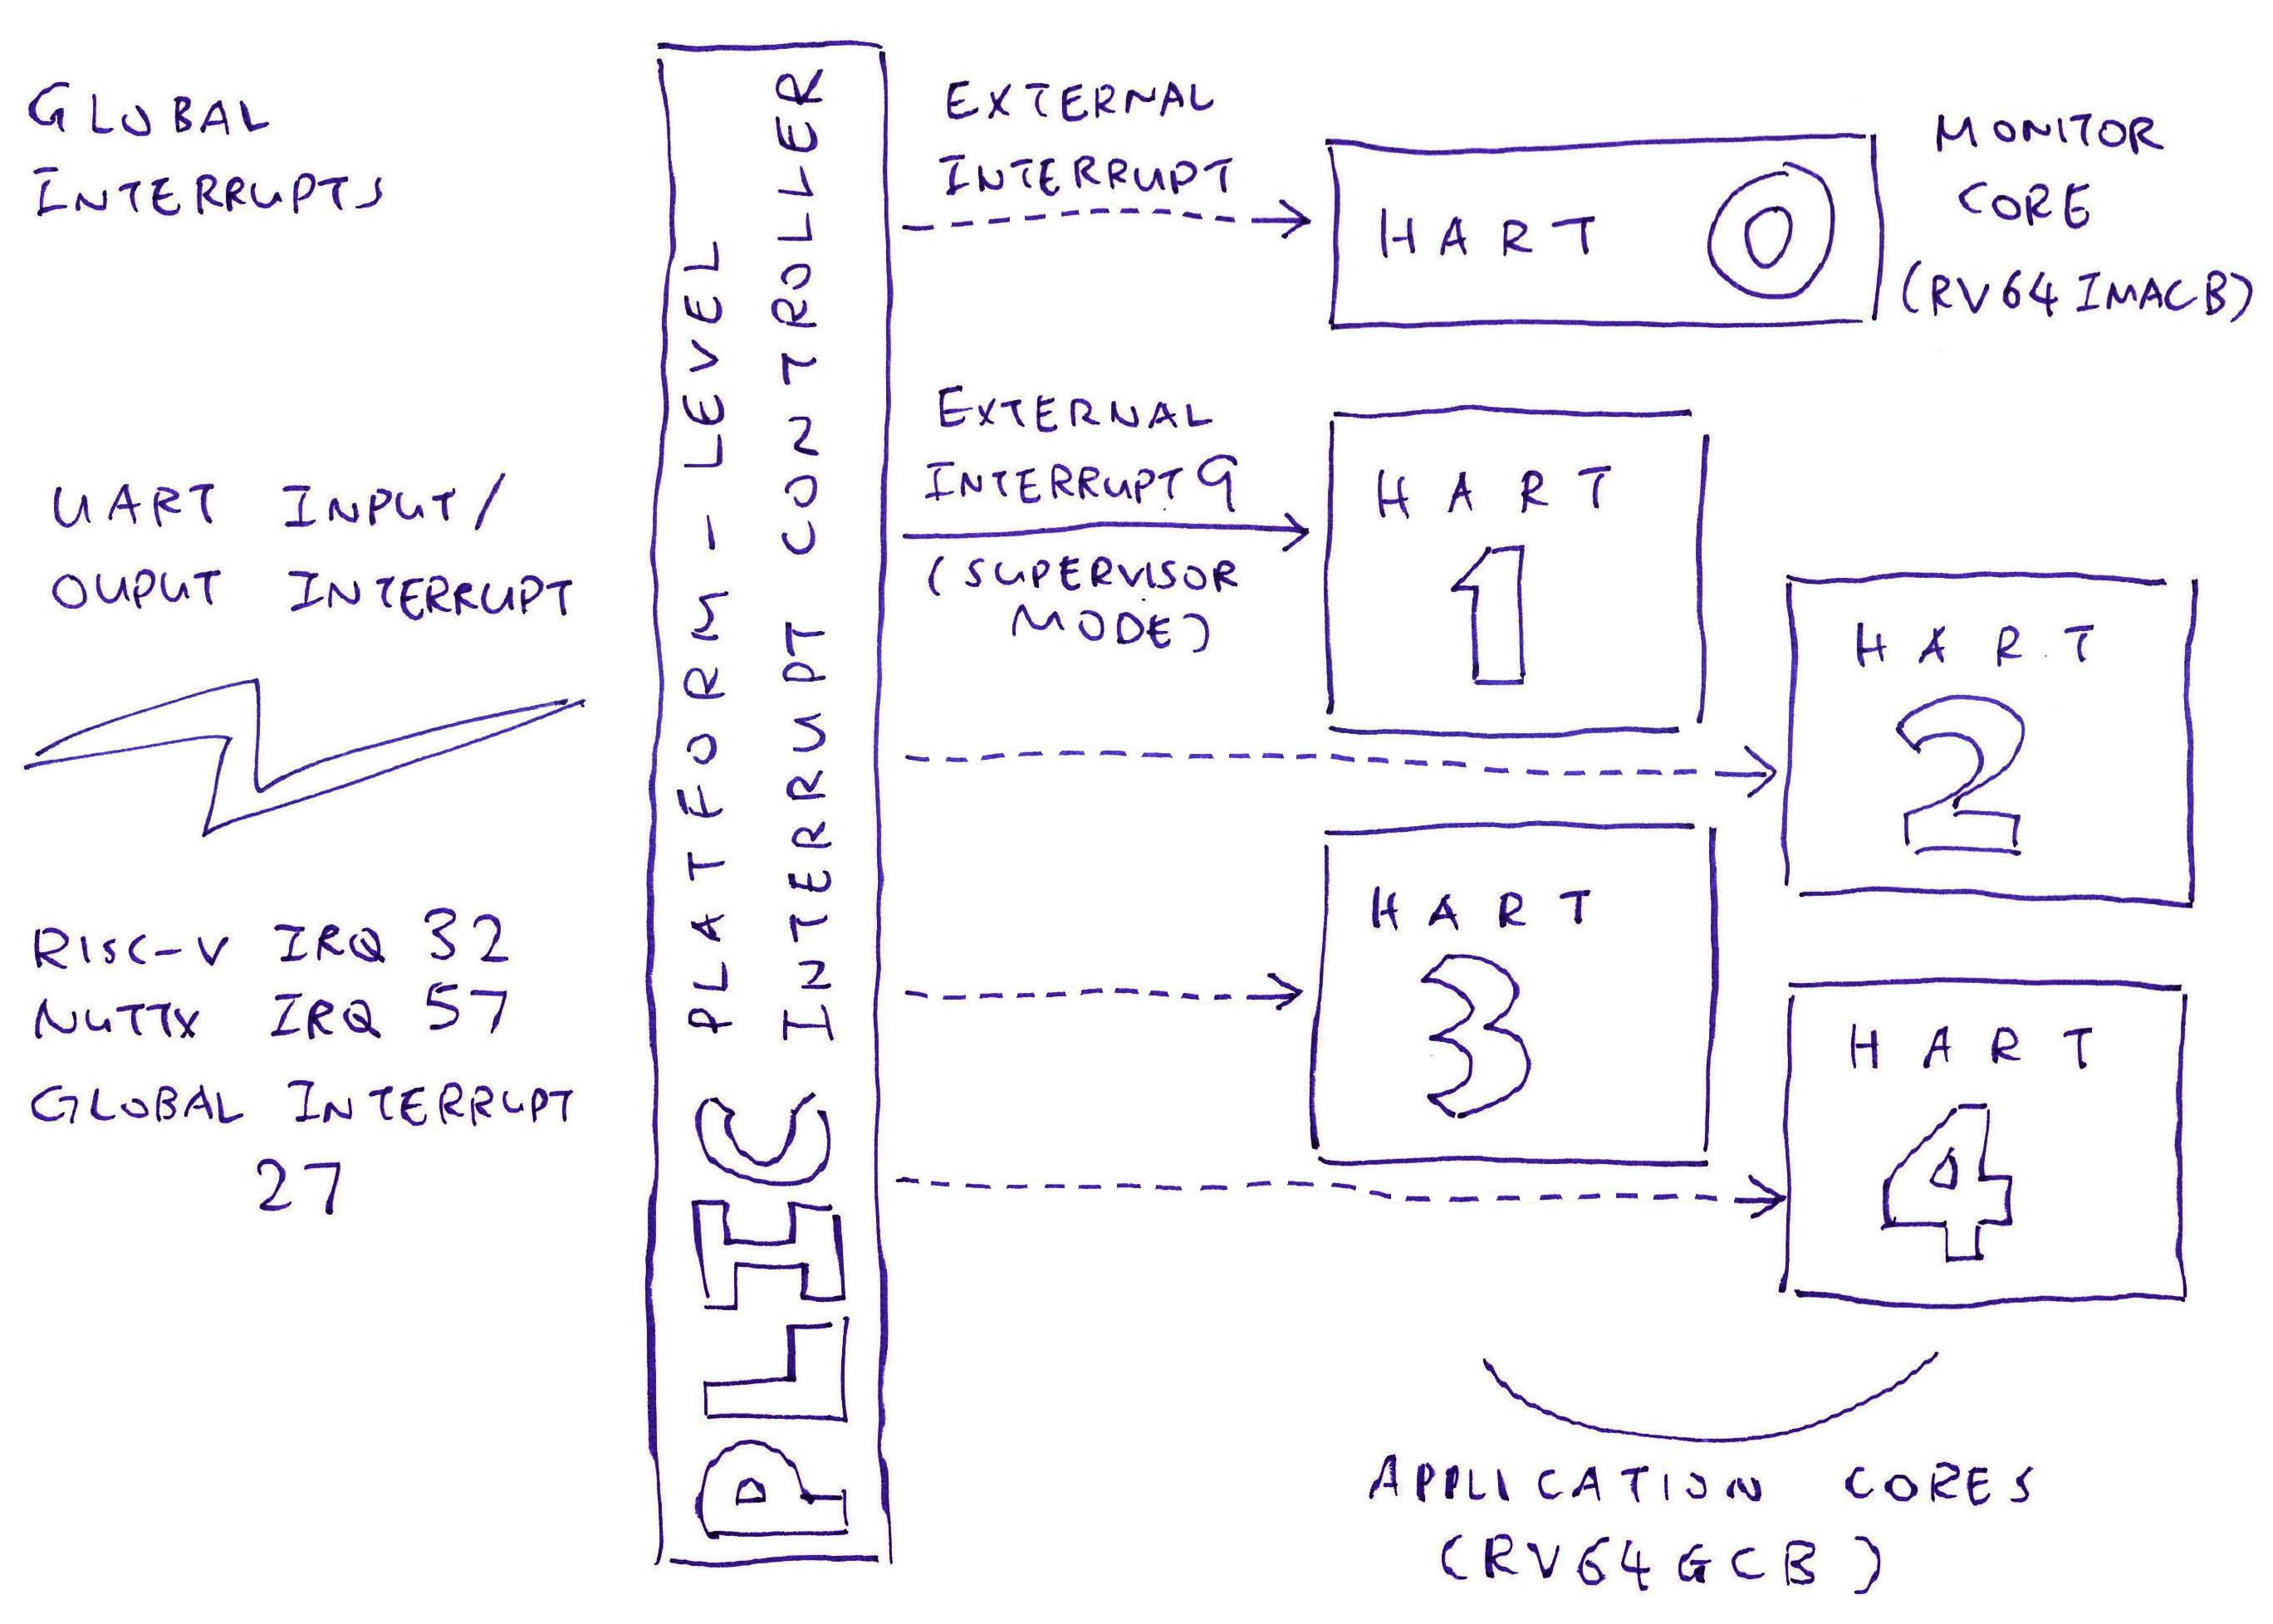 GLOBAL
INTERRUPTS
UART INPUT/
OUPUT INTERRUPT
RISC-V IRQ 32
NUTTX IRQ 57
GLOBAL INTERRUPT
27
PLIC
PLATFORM-LEVEL
INTERRUPT CONTROLLER
EXTERNAL
INTERRUPT
HART 0
MONITOR
CORE
(RV64IMACB)
EXTERNAL
INTERRUPT 9
(SUPERVISOR
MODE)
HART
1
HART
2
HART
3
HART
4
APPLICATION CORES
(RV64GCB)